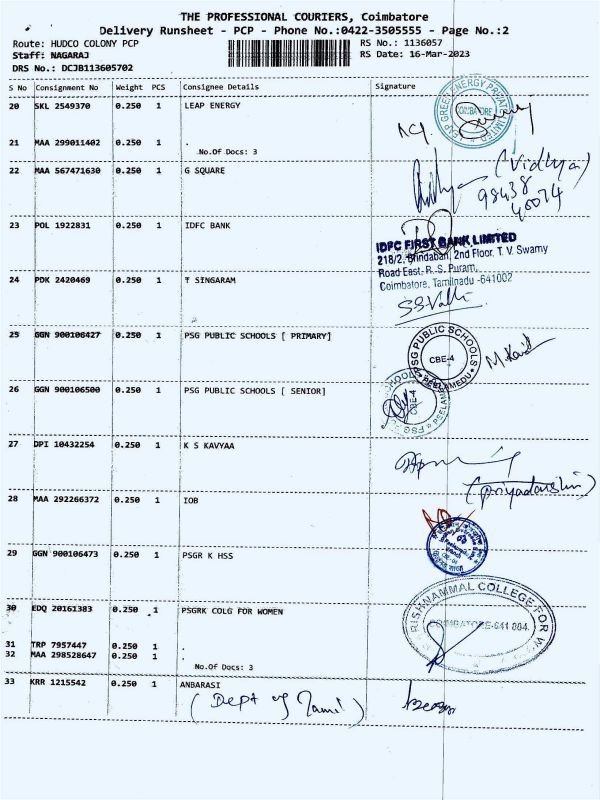 THE PROFESSIONAL COURIERS, Coimbatore
Delivery Runsheet - PCP - Phone No.:0422-3505555 - Page No.:2
Route: HUDCO COLONY PCP RS No.: 1136057
Staff: NAGARAJ RS Date: 16-Mar-2023
DRS No.: DCJB113605702
S No Consignment No Weight PCS Consignee Details Signature
20 SKL 2549370 0.250 1 LEAP ENERGY
GREEN ENERGY PRIVATE LIMITED
COIMBATORE
21 MAA 299011402 0.250 1 .
No.Of Docs: 3
22 MAA 567471630 0.250 1 G SQUARE
(Vidhya)
98438
40074
23 POL 1922831 0.250 1 IDFC BANK
IDFC FIRST BANK LIMITED
218/2, Brindaban, 2nd Floor, T. V. Swamy
Road East, R. S. Puram,
Coimbatore, Tamilnadu -641002
24 PDK 2420469 0.250 1 T SINGARAM
S.S.Valli
25 GGN 900106427 0.250 1 PSG PUBLIC SCHOOLS [ PRIMARY]
PSG PUBLIC SCHOOLS
CBE-4
PEELAMEDU
26 GGN 900106500 0.250 1 PSG PUBLIC SCHOOLS [ SENIOR]
CBE-4
27 DPI 10432254 0.250 1 K S KAVYAA
(Priyadarshini)
28 MAA 292266372 0.250 1 IOB
29 GGN 900106473 0.250 1 PSGR K HSS
30 EDQ 20161383 0.250 1 PSGRK COLG FOR WOMEN
KRISHNAMMAL COLLEGE FOR
COIMBATORE-641 004.
31 TRP 7957447 0.250 1 .
32 MAA 298528647 0.250 1
No.Of Docs: 3
33 KRR 1215542 0.250 1 ANBARASI
(Dept of Tamil)